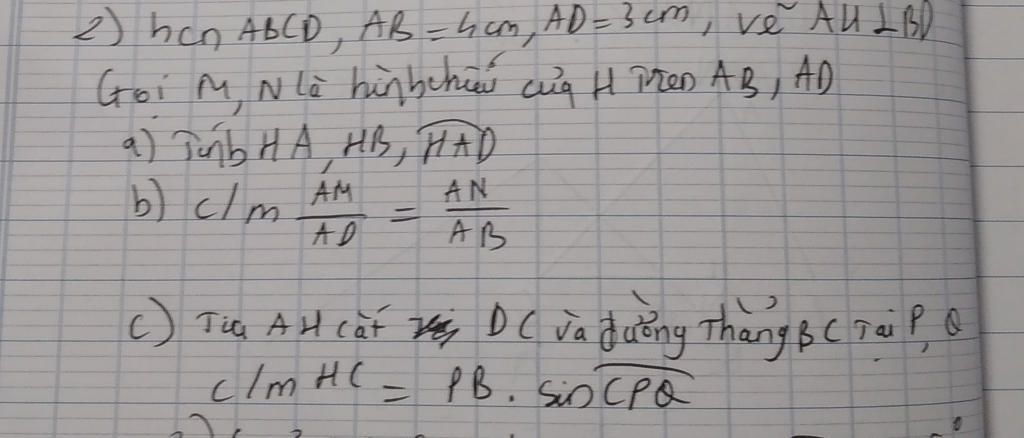 2) hcn ABCD, AB = 4cm, AD = 3cm, vẽ AH ⊥ BD
Gọi M, N là hình chiếu của H trên AB, AD
a) Tính HA, HB, HAD
b) c/m AM/AD = AN/AB
c) Tia AH cắt DC và đường thẳng BC Tại P, Q
c/m HC = PB. sin CPQ